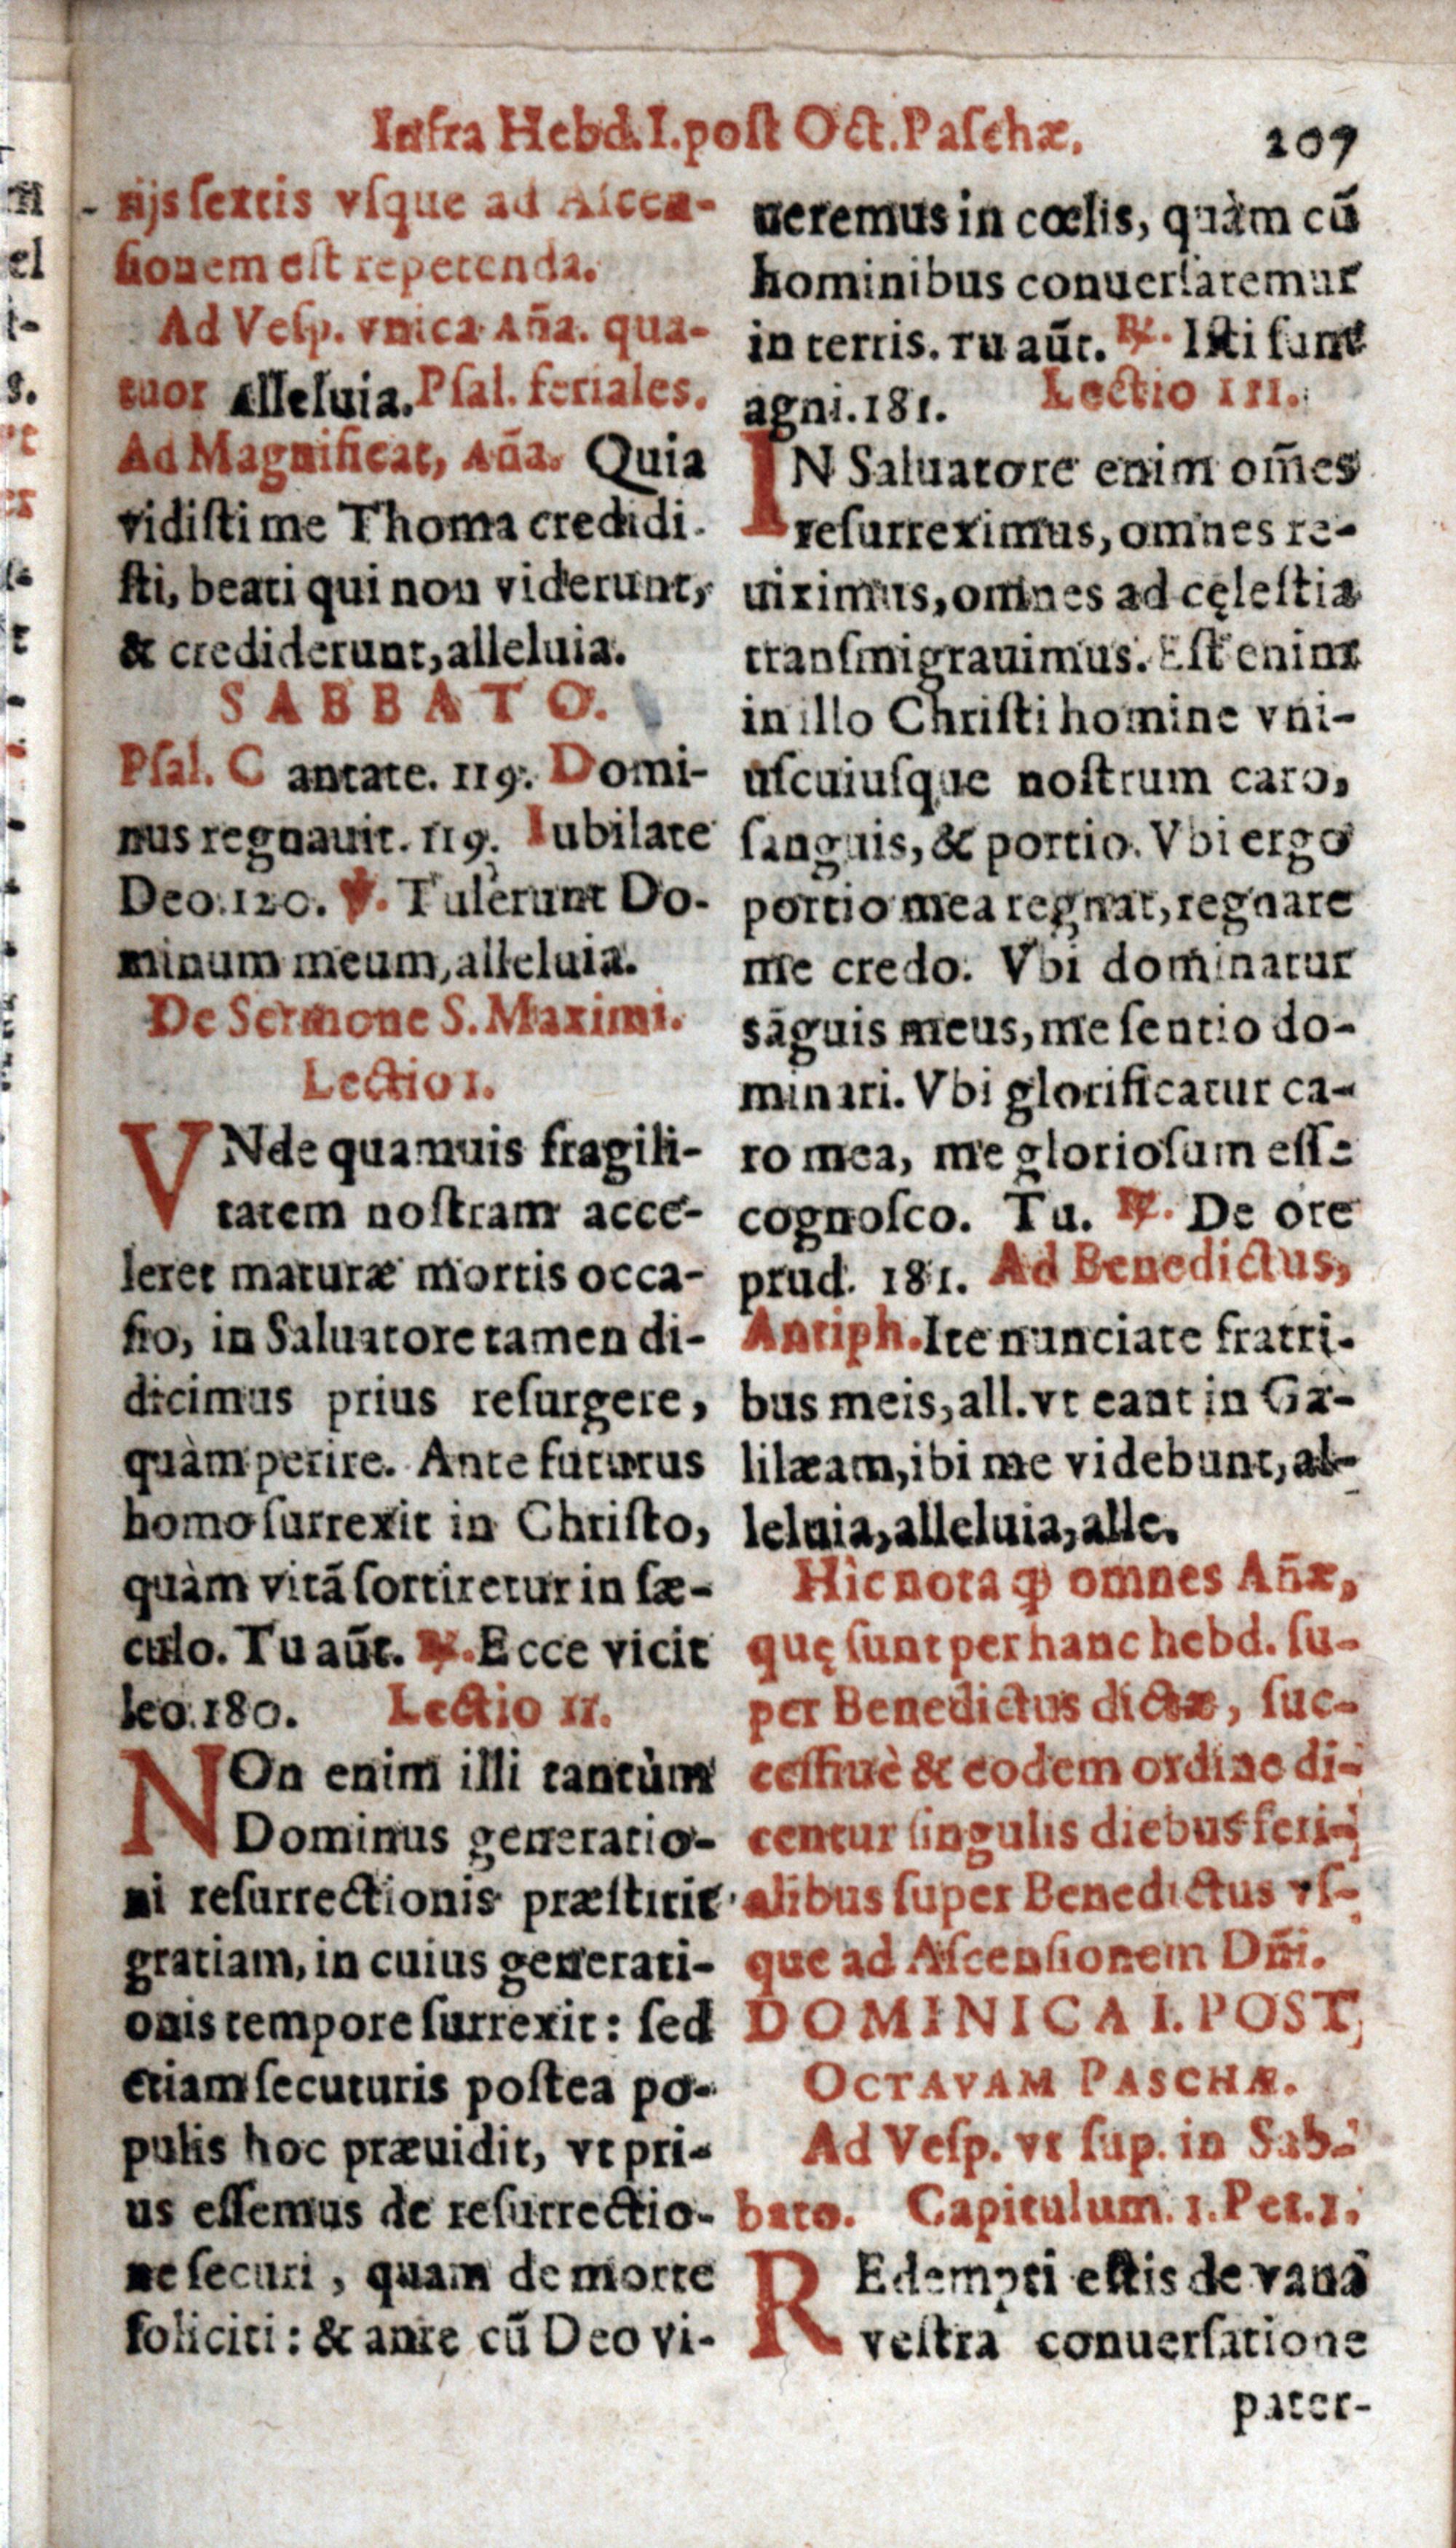 Infra Hebd. I. post Oct. Paschæ. 209
rijs sextis vsque ad Ascen-
sionem est repetenda.
Ad Vesp. vnica Añа. qua-
tuor Alleluia. Psal. feriales.
Ad Magnificat, Aña. Quia
vidisti me Thoma credidi-
sti, beati qui non viderunt,
& crediderunt, alleluia.
SABBATO.
Psal. Cantate. 119. Domi-
nus regnauit. 119. Iubilate
Deo. 120. ℣. Tulerunt Do-
minum meum, alleluia.
De Sermone S. Maximi.
Lectio I.
VNde quamuis fragili-
tatem nostram acce-
leret maturæ mortis occa-
sio, in Saluatore tamen di-
dicimus prius resurgere,
quàm perire. Ante futurus
homo surrexit in Christo,
quàm vitã sortiretur in sæ-
culo. Tu aũt. ℟. Ecce vicit
leo. 180. Lectio II.
NOn enim illi tantùm
Dominus generatio-
ni resurrectionis præstitit
gratiam, in cuius generati-
onis tempore surrexit: sed
etiam secuturis postea po-
pulis hoc præuidit, vt pri-
us essemus de resurrectio-
ne securi, quam de morte
soliciti: & ante cũ Deo vi-
ueremus in cœlis, quàm cũ
hominibus conuersaremur
in terris. Tu aũt. ℟. Isti sunt
agni. 181. Lectio III.
IN Saluatore enim om̃es
resurreximus, omnes re-
uiximus, omnes ad cęlestia
transmigrauimus. Est enim
in illo Christi homine vni-
uscuiusque nostrum caro,
sanguis, & portio. Vbi ergo
portio mea regnat, regnare
me credo. Vbi dominatur
sãguis meus, me sentio do-
minari. Vbi glorificatur ca-
ro mea, me gloriosum esse
cognosco. Tu. ℟. De ore
prud. 181. Ad Benedictus,
Antiph. Ite nunciate fratri-
bus meis, all. vt eant in Ga-
lilæam, ibi me videbunt, al-
leluia, alleluia, alle.
Hìc nota ꝙ omnes Añæ,
quę sunt per hanc hebd. su-
per Benedictus dictæ, suc-
cessiuè & eodem ordine di-
centur singulis diebus feri-
alibus super Benedictus vs-
que ad Ascensionem Dñi.
DOMINICA I. POST
OCTAVAM PASCHÆ.
Ad Vesp. vt sup. in Sab-
bato. Capitulum. 1. Pet. 1.
REdempti estis de vana
vestra conuersatione
pater-